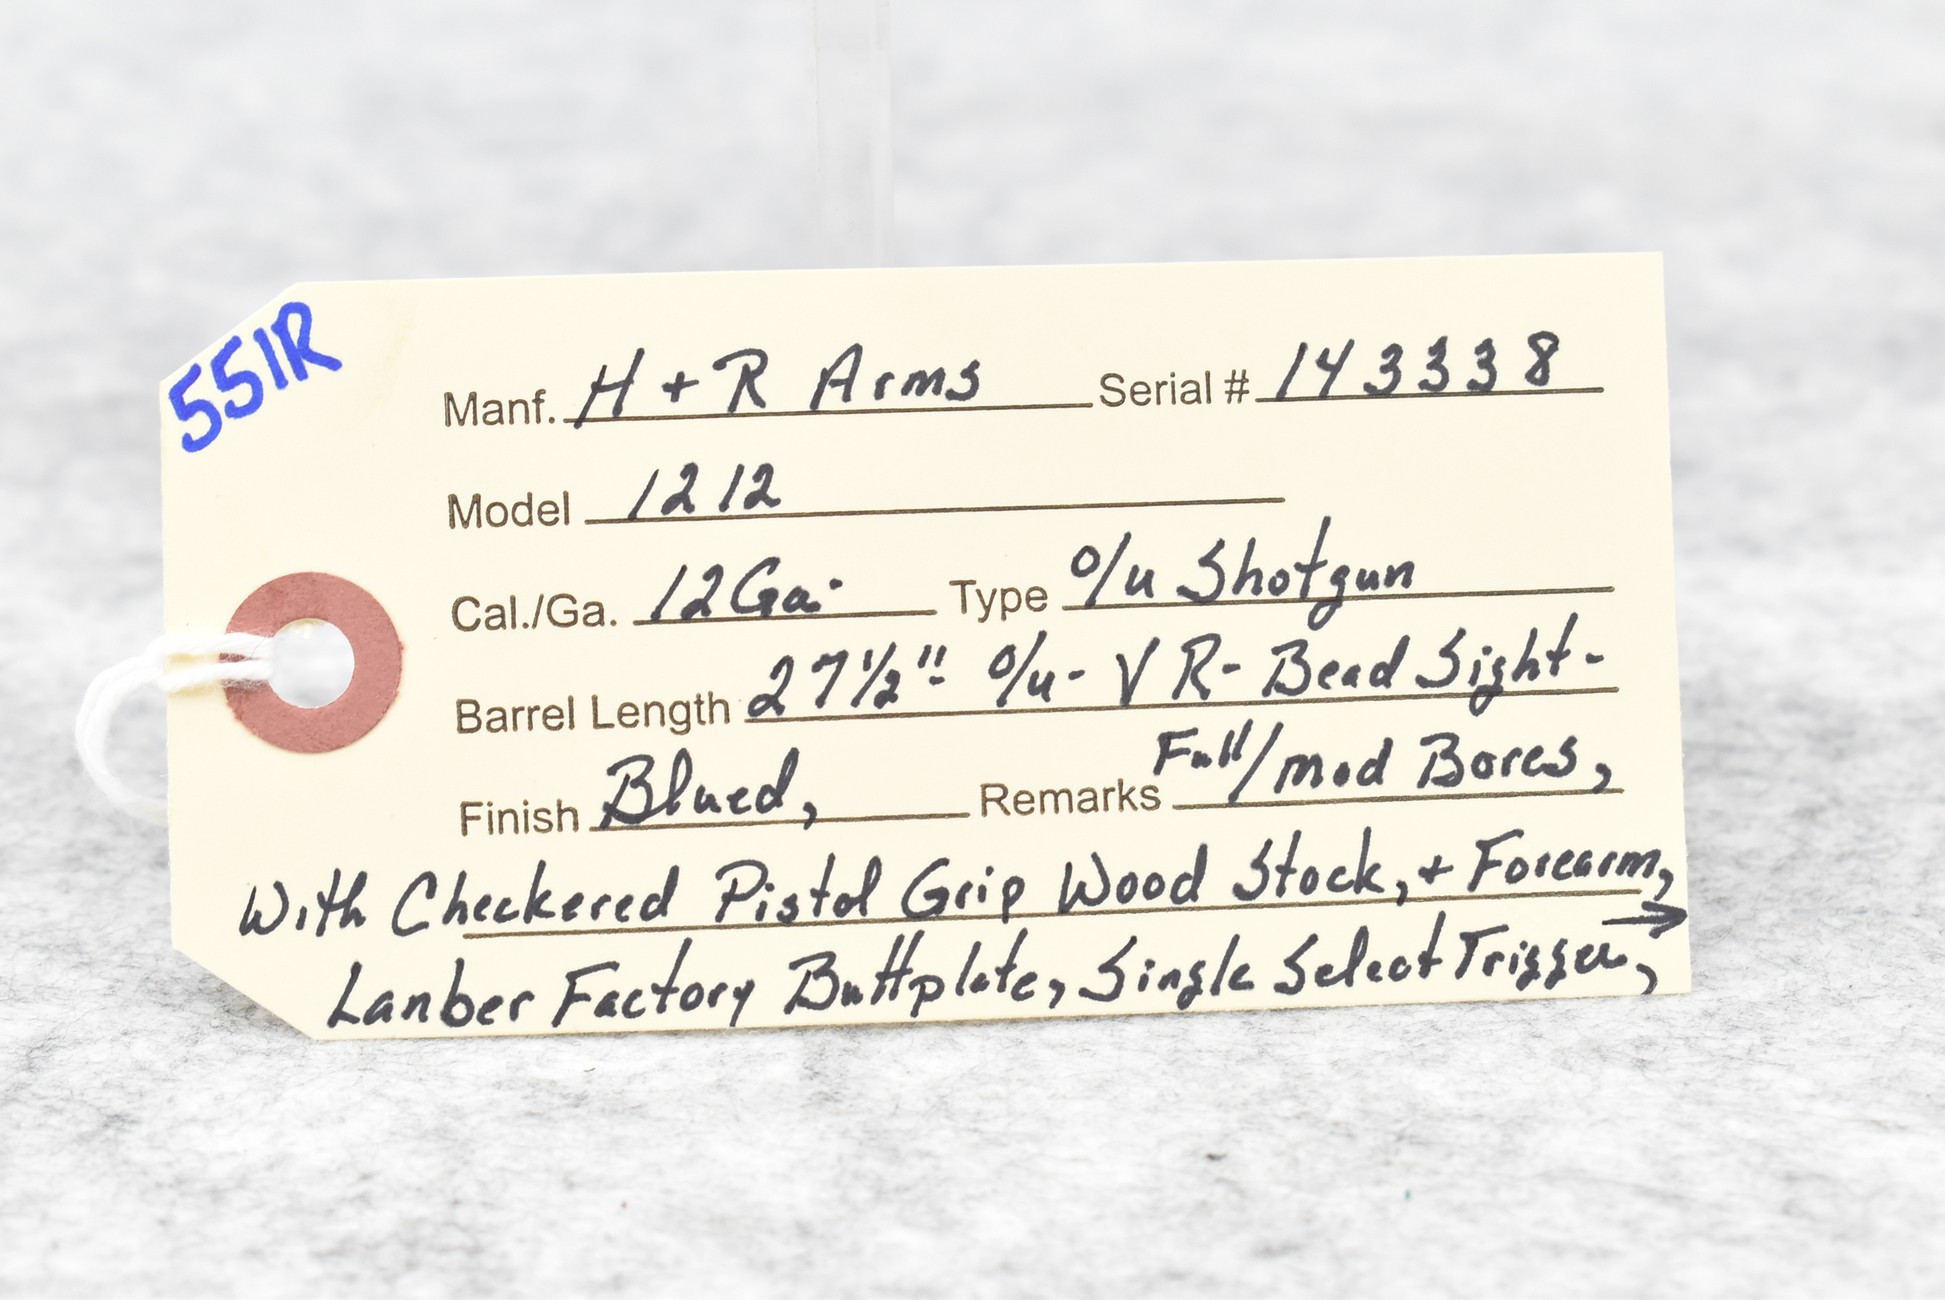 551R
Manf. H + R Arms Serial # 143338
Model 1212
Cal./Ga. 12 Ga. Type O/u Shotgun
Barrel Length 27 1/2" - O/u - VR - Bead Sight -
Finish Blued, Remarks Full/mod Bores,
With Checkered Pistol Grip Wood Stock, + Forearm,
Lanber Factory Buttplate, Single Select Trigger, →